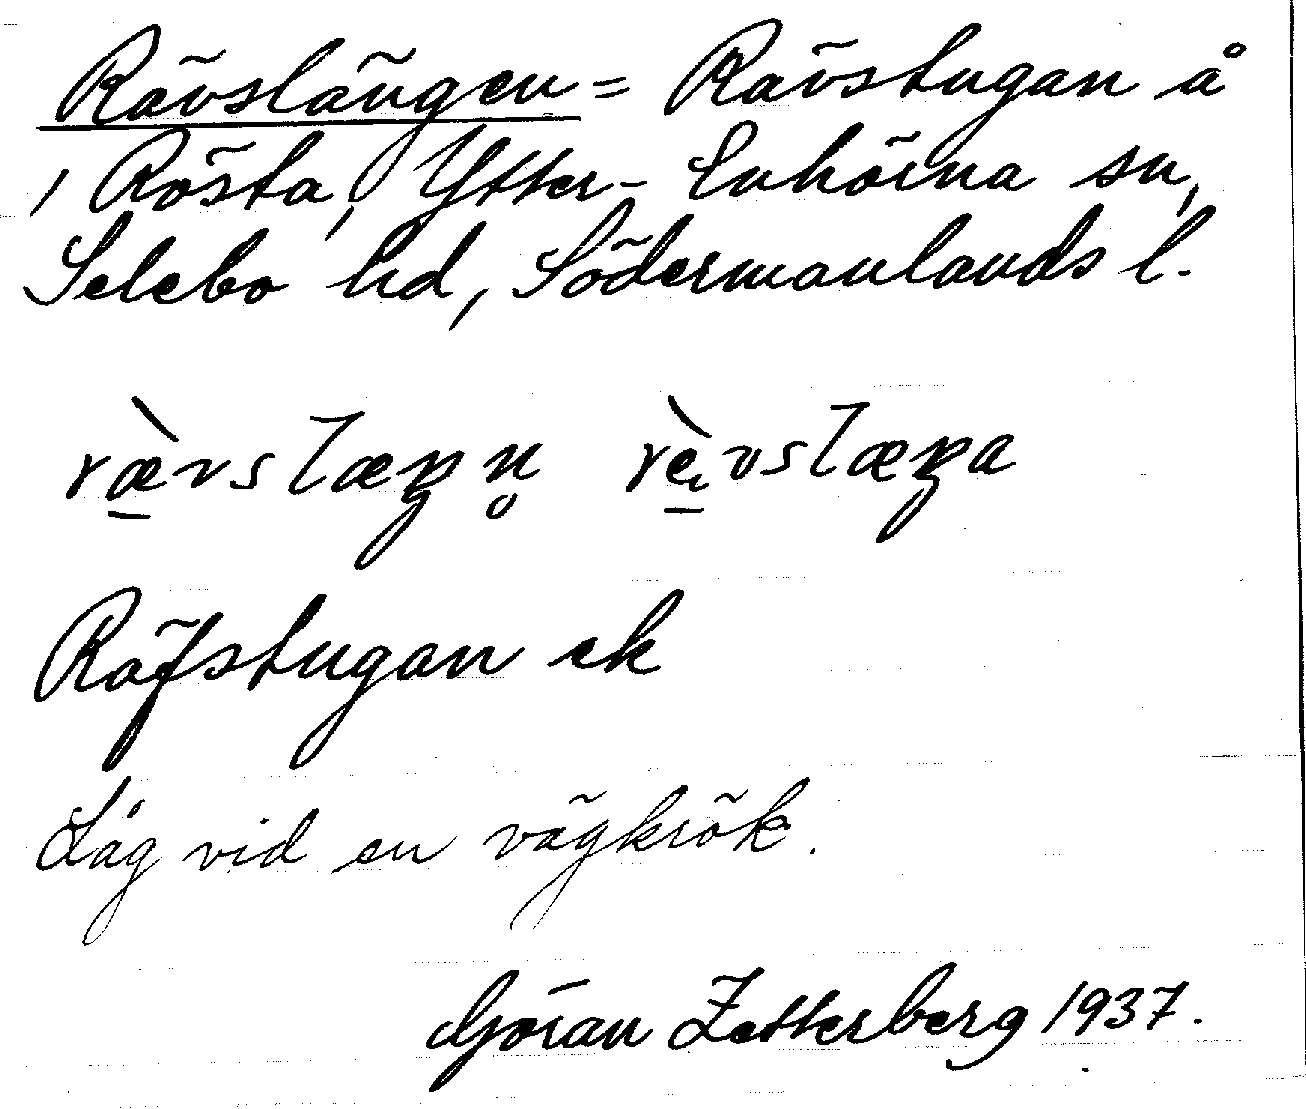 Rävslängen = Rävstugan å
1 Rösta, Ytter-Enhörna sn,
Selebo hd, Södermanlands l.
ræ̀vslæŋn̥ rè̀vslæŋa
Räfstugan ek
Låg vid en vägkrök.
Göran Zetterberg 1937.